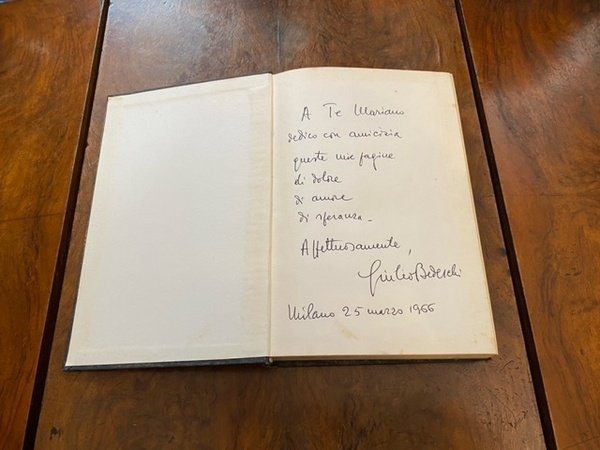 A Te Mariano
dedico con amicizia
queste mie pagine
di dolore
di amore
di speranza.
Affettuosamente,
Giulio Bedeschi
Milano 25 marzo 1966